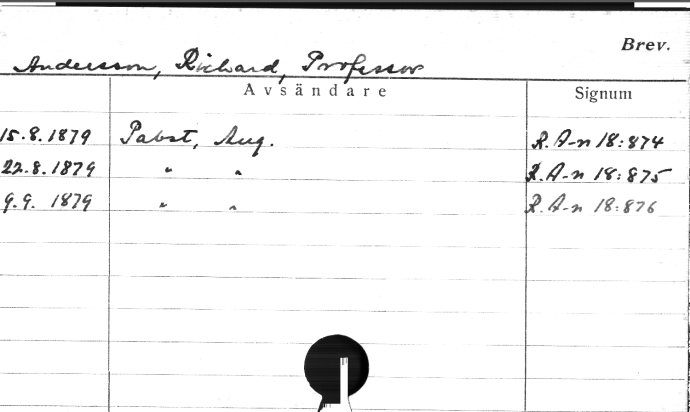 Brev.
Andersson, Richard, Professor
Avsändare Signum
15.8.1879 Pabst, Aug. R. A-n 18:874
22.8.1879 " " R. A-n 18:875
9.9. 1879 " " R. A-n 18:876